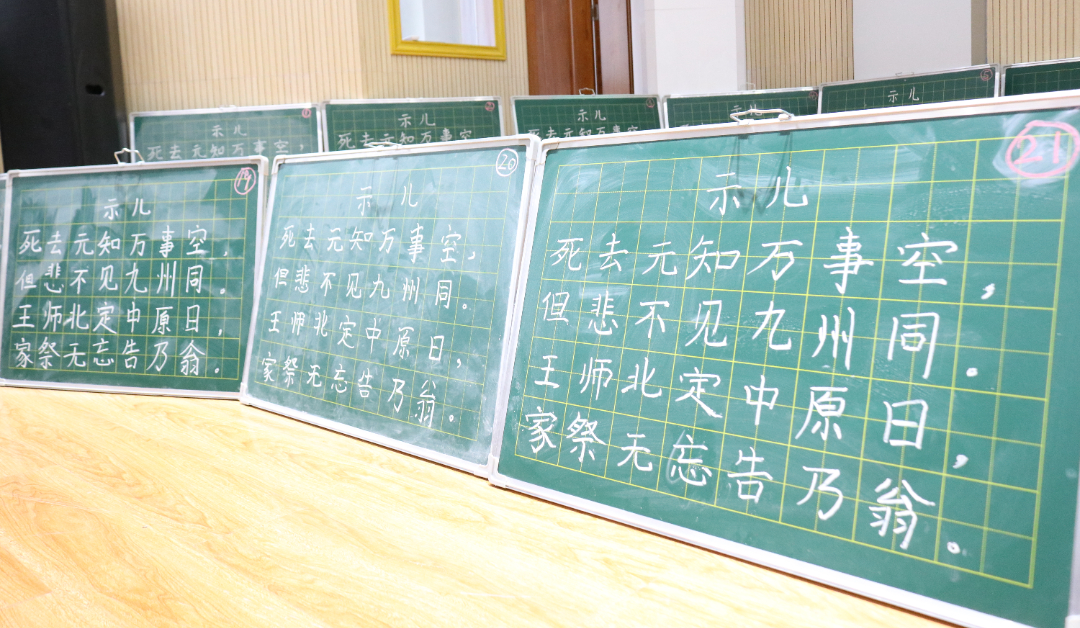 示儿
死去元知万事空，
示儿
死去元知万事空
示儿
死去元知万事空
示儿
示儿
19
示儿
死去元知万事空，
但悲不见九州同。
王师北定中原日，
家祭无忘告乃翁。
20
示儿
死去元知万事空，
但悲不见九州同。
王师北定中原日，
家祭无忘告乃翁。
21
示儿
死去元知万事空，
但悲不见九州同。
王师北定中原日，
家祭无忘告乃翁。